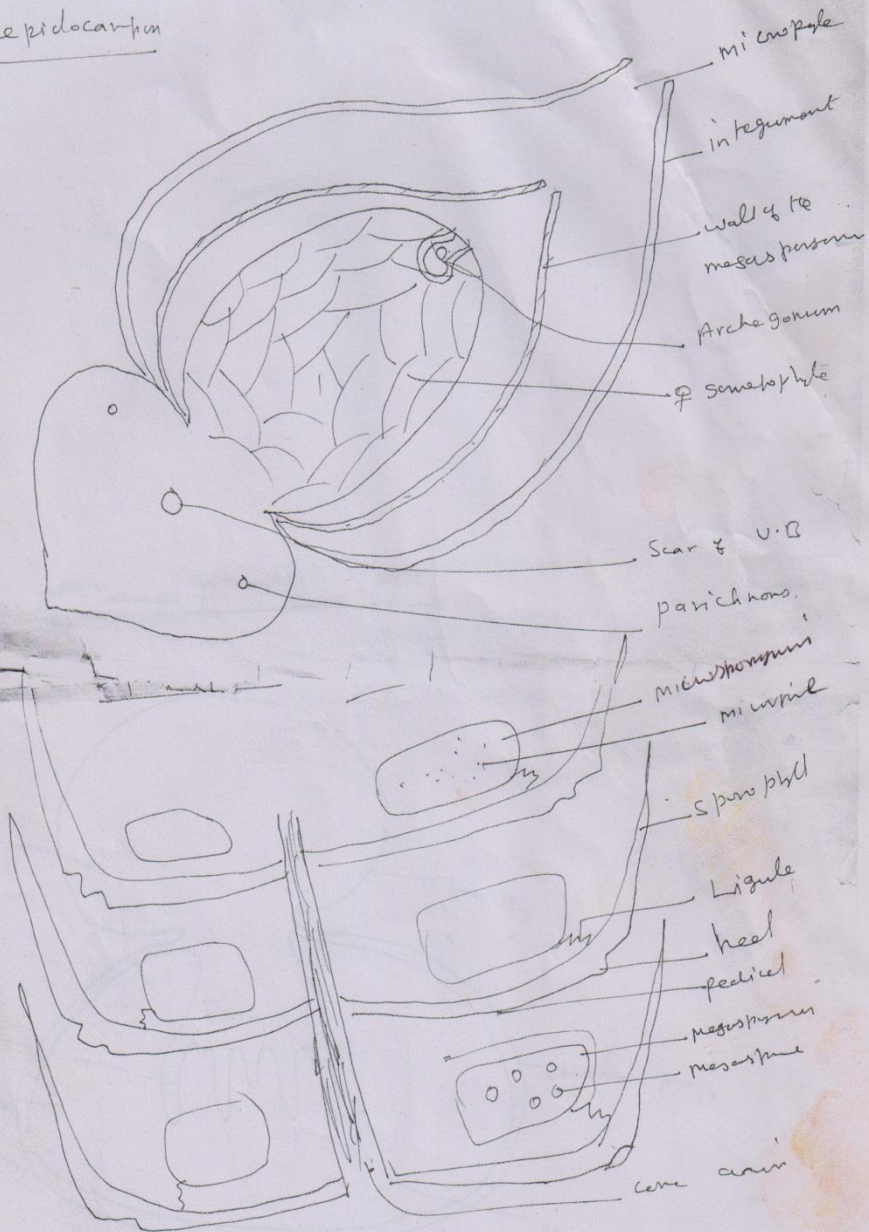 epidocarpon
micropyle
integument
wall of the
megasporan
Archegonium
♀ gametophyte
Scar of V.B
parichnons.
microsporangium
microspore
Sporophyll
Ligule
heel
pedicel
megaspore
cone axis